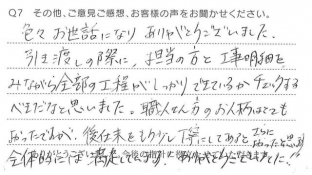 Q7 その他、ご意見ご感想、お客様の声をお聞かせください。
色々お世話になりありがとうございました。
引き渡しの際に、担当の方と工事明細を
みながら全部の工程がしっかりできているかチェックする
べきだなと思いました。職人さん方のお人柄はとても
よかったですが、後仕末をもう少し丁寧にしてあると さらに よかったと思います
全体的には満足しています。ありがとうございました!!